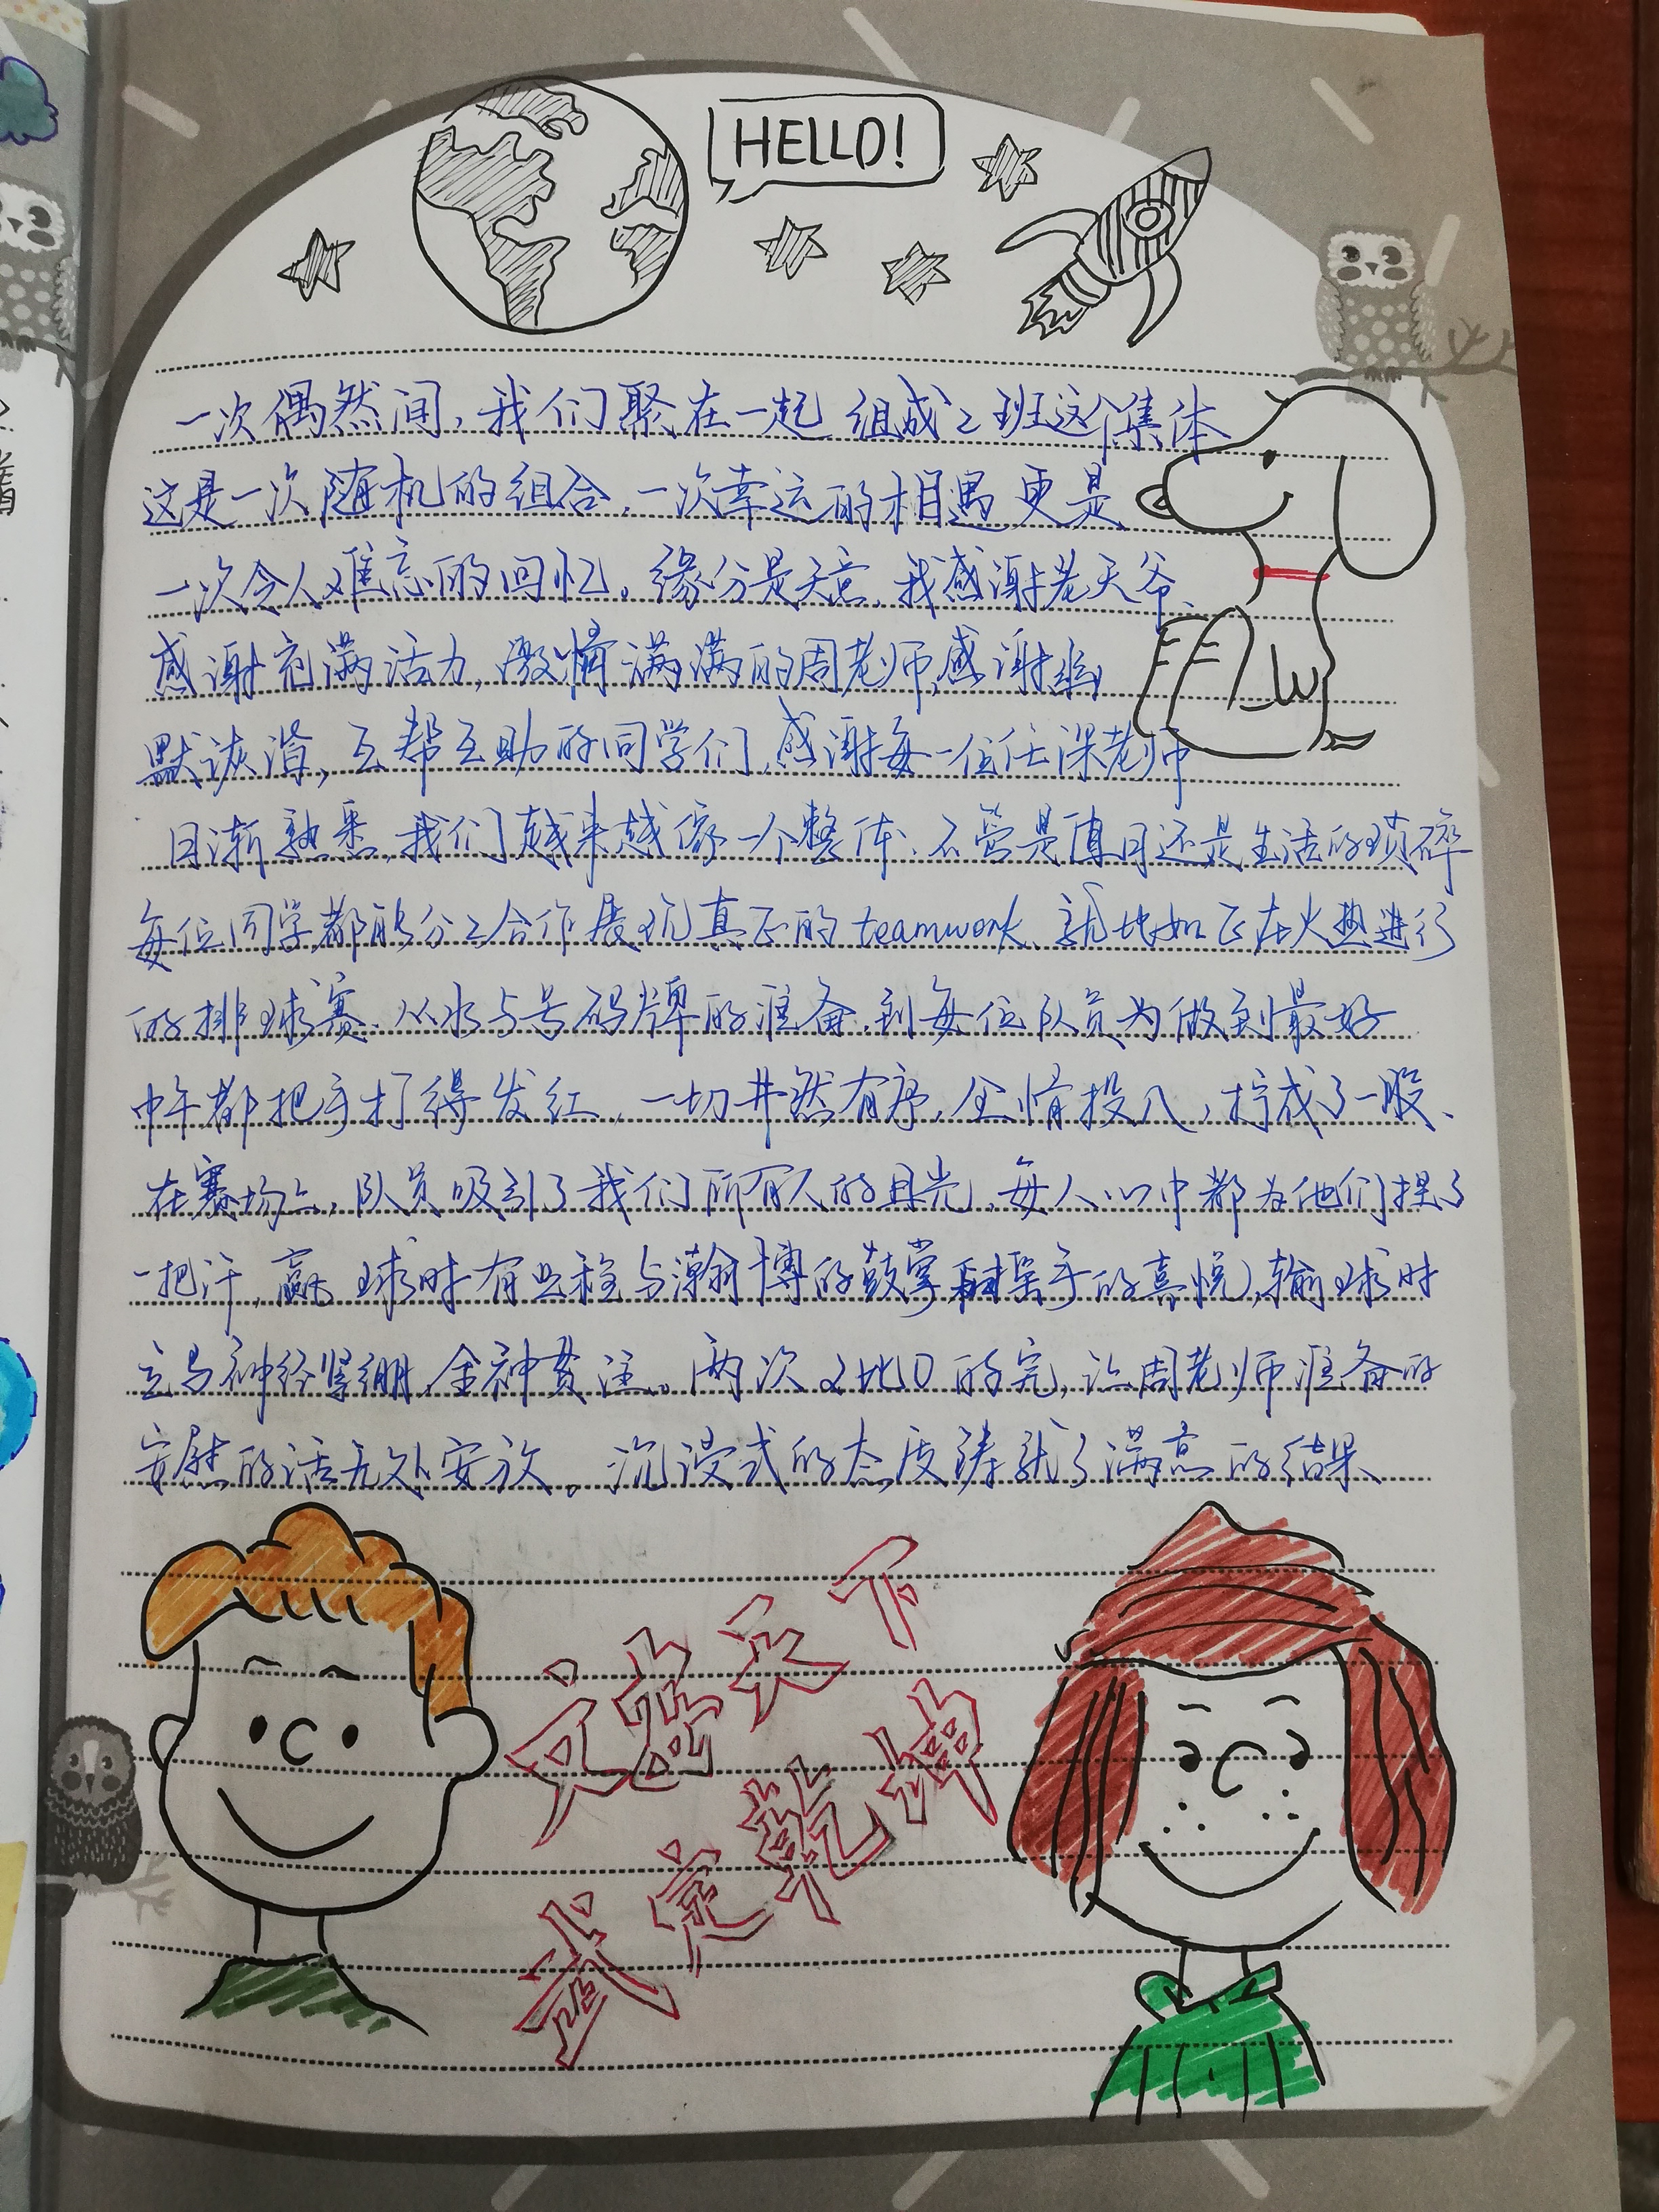 HELLO!
一次偶然间,我们聚在一起 组成2班这个集体
这是一次随机的组合,一次幸运的相遇 更是
一次令人难忘的回忆。缘分是天意,我感谢老天爷、
感谢充满活力,激情满满的周老师,感谢幽
默诙谐,互帮互助的同学们,感谢每一位任课老师
日渐熟悉,我们越来越像一个整体、不管是 还是生活的琐碎
每位同学都能分工合作展现真正的teamwork、就比如正在火热进行
的排球赛、从水与号码牌的准备,到每位队员为做到最好
中午都把手打得发红,一切井然有序,全情投入,拧成了一股、
在赛场上,队员吸引了我们所有人的目光,每人心中都为他们捏了
一把汗,赢球时有 与瀚博的鼓掌 的喜悦,输球时
立马神经紧绷,全神贯注。两次2比0的完,让周老师准备的
安慰的话无处安放。沉浸式的态度铸就了满意的结果
文盛天下
武定乾坤